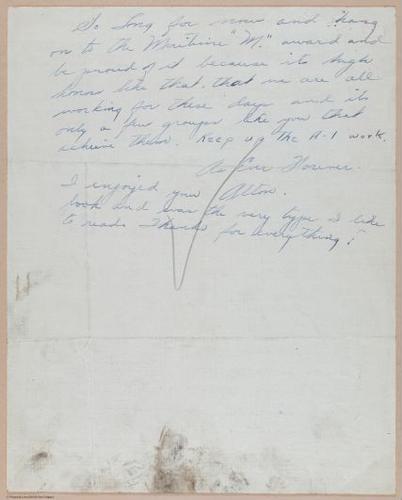 So long for now and hang
on to the Maritime "M." award and
be proud of it because its high
honors like that, that we are all
working for these days and its
only a few groups like you that
achieve them. Keep up the A-1 work.
As Ever Forever.
Alton.
I enjoyed your
book and was the very type I like
to read. Thanks for everything!